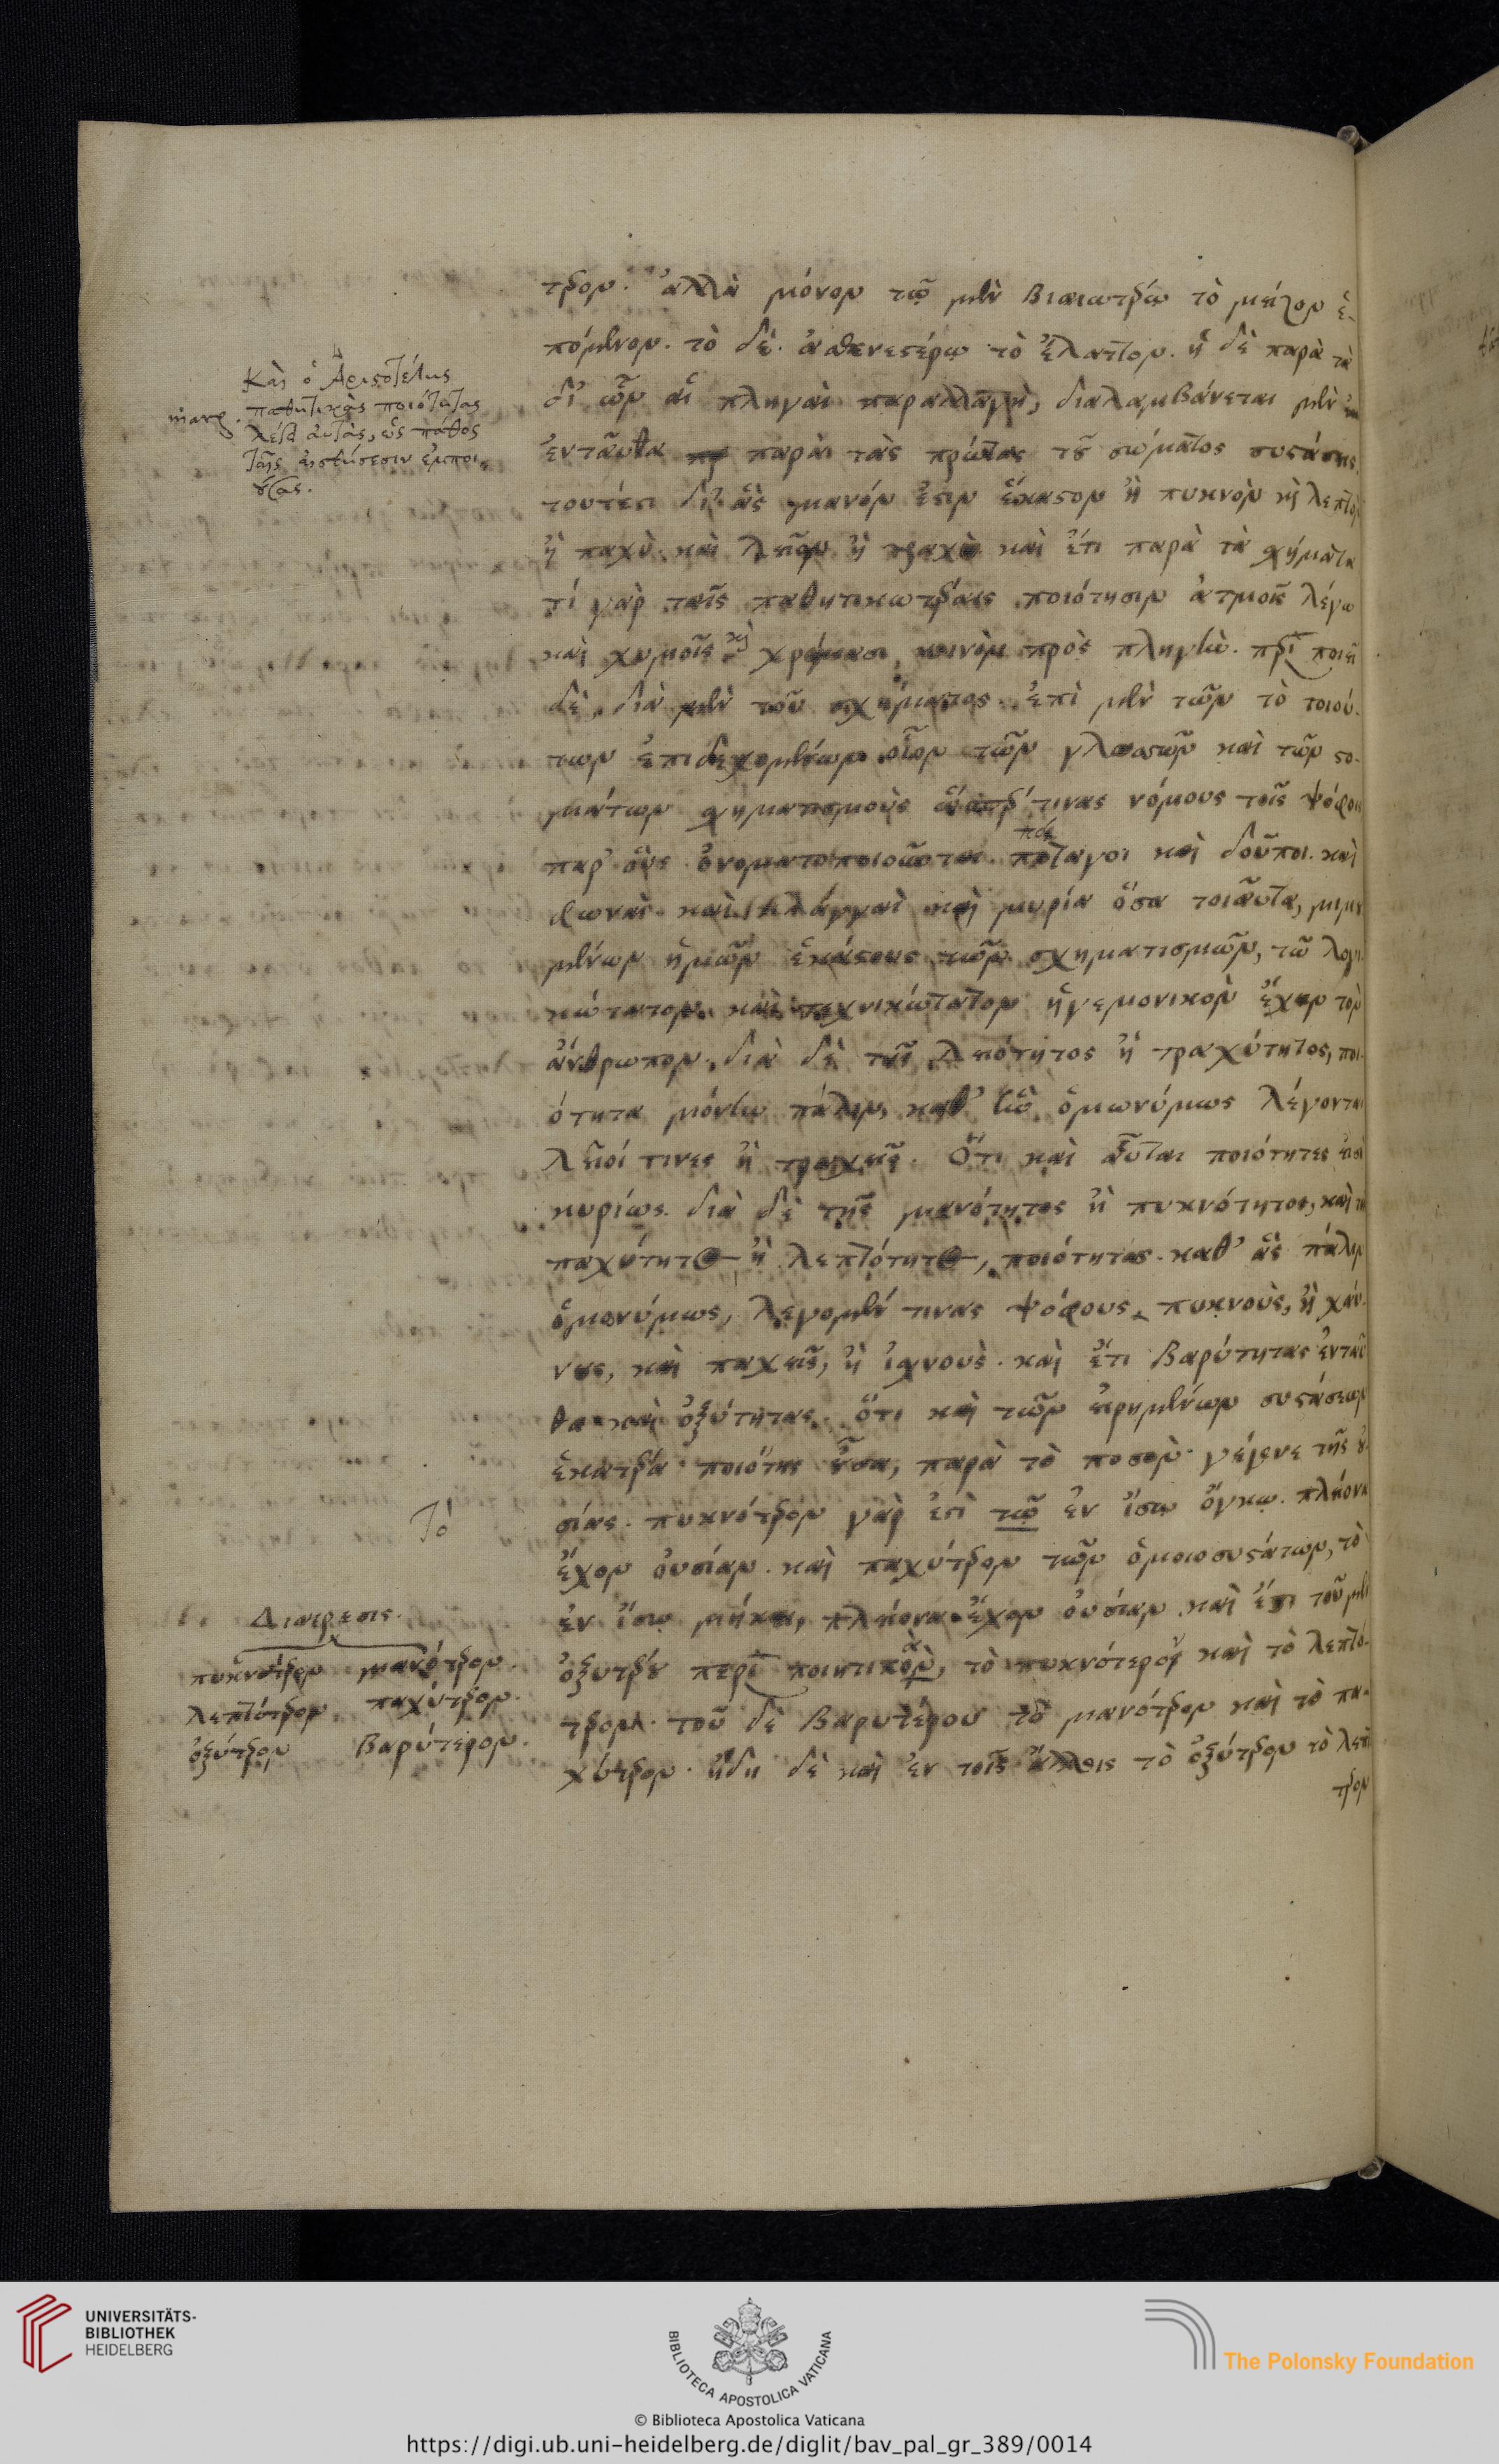 τερον. ἀλλὰ μόνον τῷ μὲν βιαιωτέρῳ τὸ μεῖζον ἑ-
πόμενον. τὸ δὲ ἀσθενεστέρῳ τὸ ἔλαττον. ἡ δὲ παρὰ τὰ
δι' ὧν αἱ πληγαὶ παραλλαγὴ, διαλαμβάνεται μὲν
ἐνταῦθα παρὰ τὰς πρώτας τοῦ σώματος συστάσεις.
τουτέστι δι' ἃς μανόν ἐστιν ἕκαστον ἢ πυκνὸν καὶ λεπτὸν
ἢ παχὺ. καὶ λεῖον ἢ τραχὺ καὶ ἔτι παρὰ τὰ σχήματα
τί γὰρ ταῖς παθητικωτέραις ποιότησιν ἀτμοῖς λέγω
καὶ χυμοῖς καὶ χρώμασι, κοινὸν πρὸς πληγὴν. περιποιεῖ
δὲ διὰ μὲν τοῦ σχήματος. ἐπὶ μὲν τῶν τὸ τοιού-
των ἐπιδεχομένων οἷον τῶν γλωσσῶν καὶ τῶν στο-
μάτων σχηματισμοὺς ὥσπερ τινας νόμους τοῖς ψόφοις
παρ' οὓς ὀνοματοποιοῦνται. πάταγοι καὶ δοῦποι. καὶ
φωναὶ. καὶ κλάγγαὶ καὶ μυρία ὅσα τοιαῦτα, μιμου
μένων ἡμῶν ἑκάστους τῶν σχηματισμῶν, τῷ λογι
κώτατον. καὶ τεχνικώτατον ἡγεμονικὸν ἔχειν τὸν
ἄνθρωπον. διὰ δὲ τῆς λειότητος ἢ τραχύτητος, ποι-
ότητα μόνην πάλιν, καθ' ἣν ὁμωνύμως λέγονται
λεῖοί τινες ἢ τραχεῖς. Ὅτι καὶ αὗται ποιότητες εἰσὶ
κυρίως. διὰ δὲ τῆς μανότητος ἢ πυκνότητος, καὶ
παχύτητος ἢ λεπτότητος, ποιότητας. καθ' ἃς πάλιν
ὁμωνύμως, λεγομέν τινας ψόφους πυκνοὺς, ἢ χαύ-
νους, καὶ παχεῖς, ἢ ἰσχνοὺς. καὶ ἔτι βαρύτητας ἐνταῦ
θα καὶ ὀξύτητας. ὅτι καὶ τῶν εἰρημένων συστάσεων
ἑκατέρα ποιότης οὖσα, παρὰ τὸ ποσὸν γέγονε τῆς οὐ-
σίας. πυκνότερον γὰρ ἐστὶ τῷ ἐν ἴσῳ ὄγκῳ. πλείονα
ἔχον οὐσίαν. καὶ παχύτερον τῶν ὁμοιοσυστάτων, τὸ
ἐν ἴσῳ μήκει, πλείονα ἔχον οὐσίαν. καὶ ἔστι τοῦ μὲν
ὀξυτέρου περιποιητικὸν, τὸ πυκνότερον καὶ τὸ λεπτό-
τερον. τοῦ δὲ βαρυτέρου τὸ μανότερον καὶ τὸ πα-
χύτερον. ἤδη δὲ καὶ ἐν τοῖς ἄλλοις τὸ ὀξύτερον τὸ λεπτό
τερον
Καὶ ὁ Ἀριστοτέλης
marg. παθητικὰς ποιότητας
λέγει αὐτὰς, ὡς πάθος
ταῖς αἰσθήσεσιν ἐμποι-
ούσας.
Τὸ
Διαιρεσις.
πυκνότερον μανότερον.
λεπτότερον παχύτερον.
ὀξύτερον βαρύτερον.
UNIVERSITÄTS-
BIBLIOTHEK
HEIDELBERG
BIBLIOTECA APOSTOLICA VATICANA
The Polonsky Foundation
© Biblioteca Apostolica Vaticana
https://digi.ub.uni-heidelberg.de/diglit/bav_pal_gr_389/0014